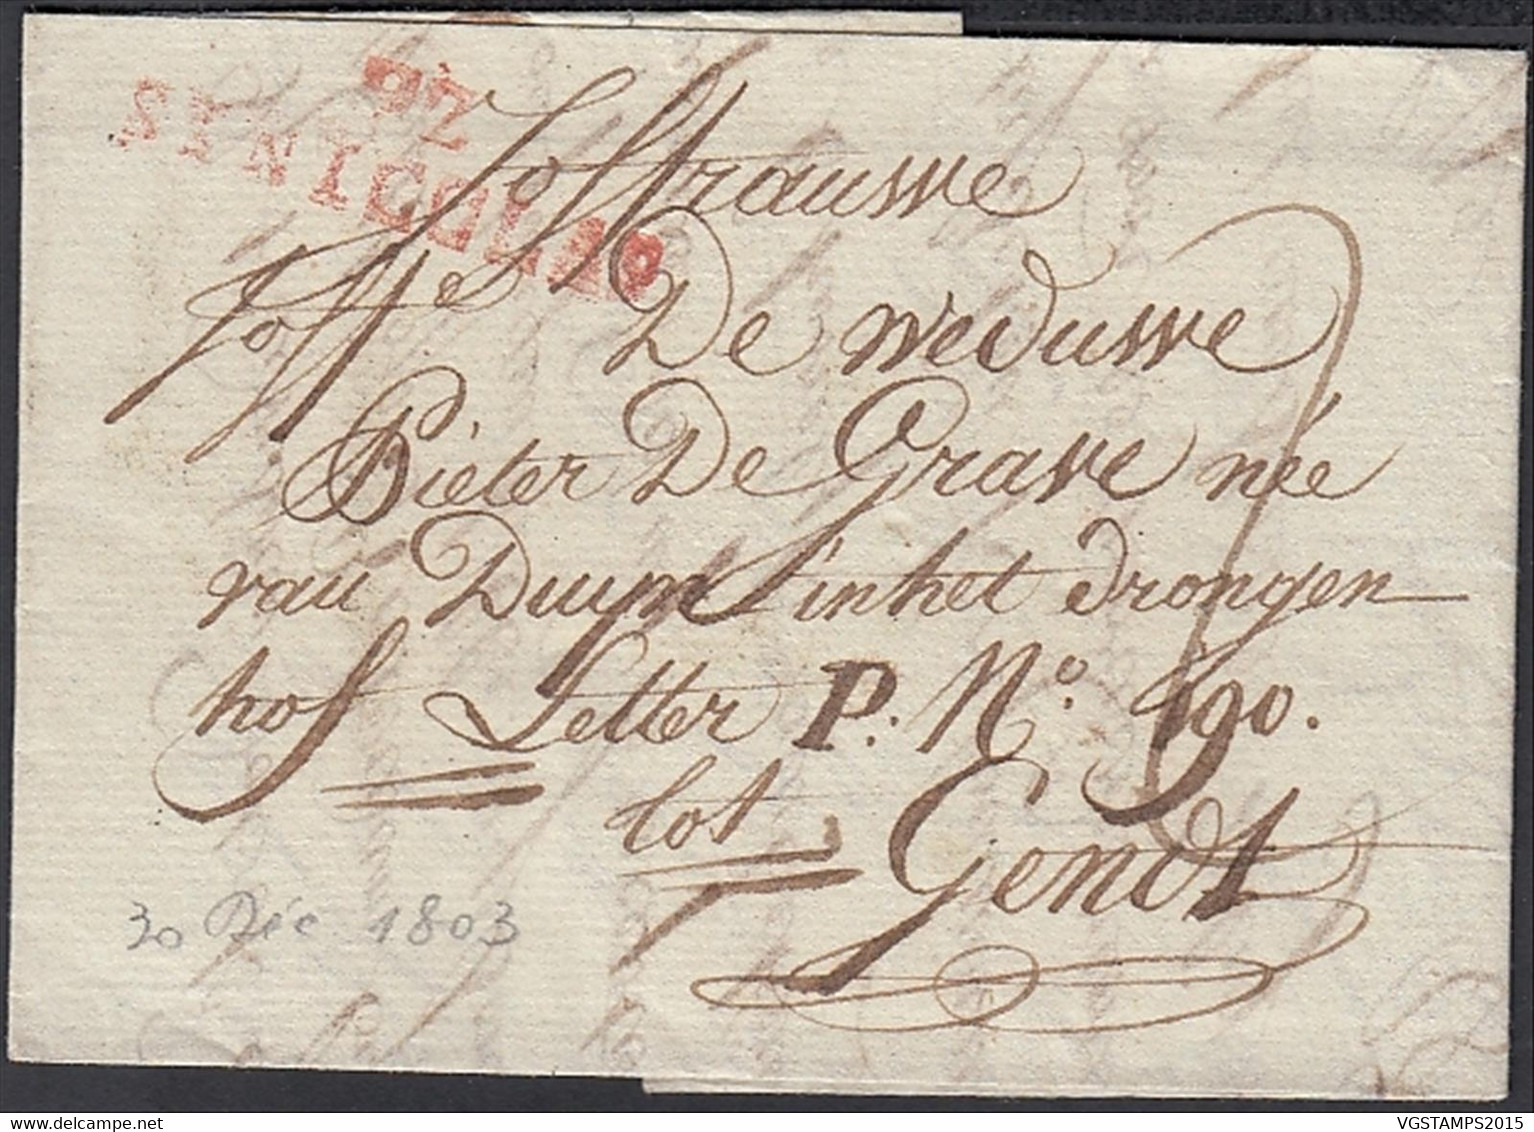 92
ST NICOLAS
Joffrauwe
Joffe De weduwe
Pieter De Grave née
van Duym in het drongen
hof Letter P. No. 190.
tot Gendt
30 Déc 1803
VGSTAMPS2015